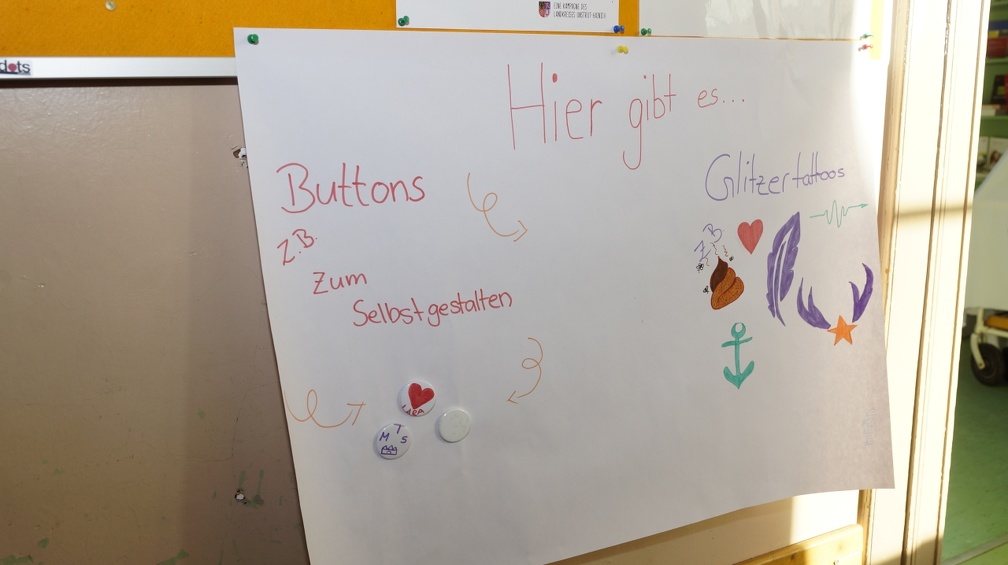 EINE KAMPAGNE DES
LANDKREISES UNSTRUT-HAINICH
dots
Hier gibt es...
Buttons
z.B.
Zum
Selbstgestalten
LARA
M T S
Glitzertattoos
z.B